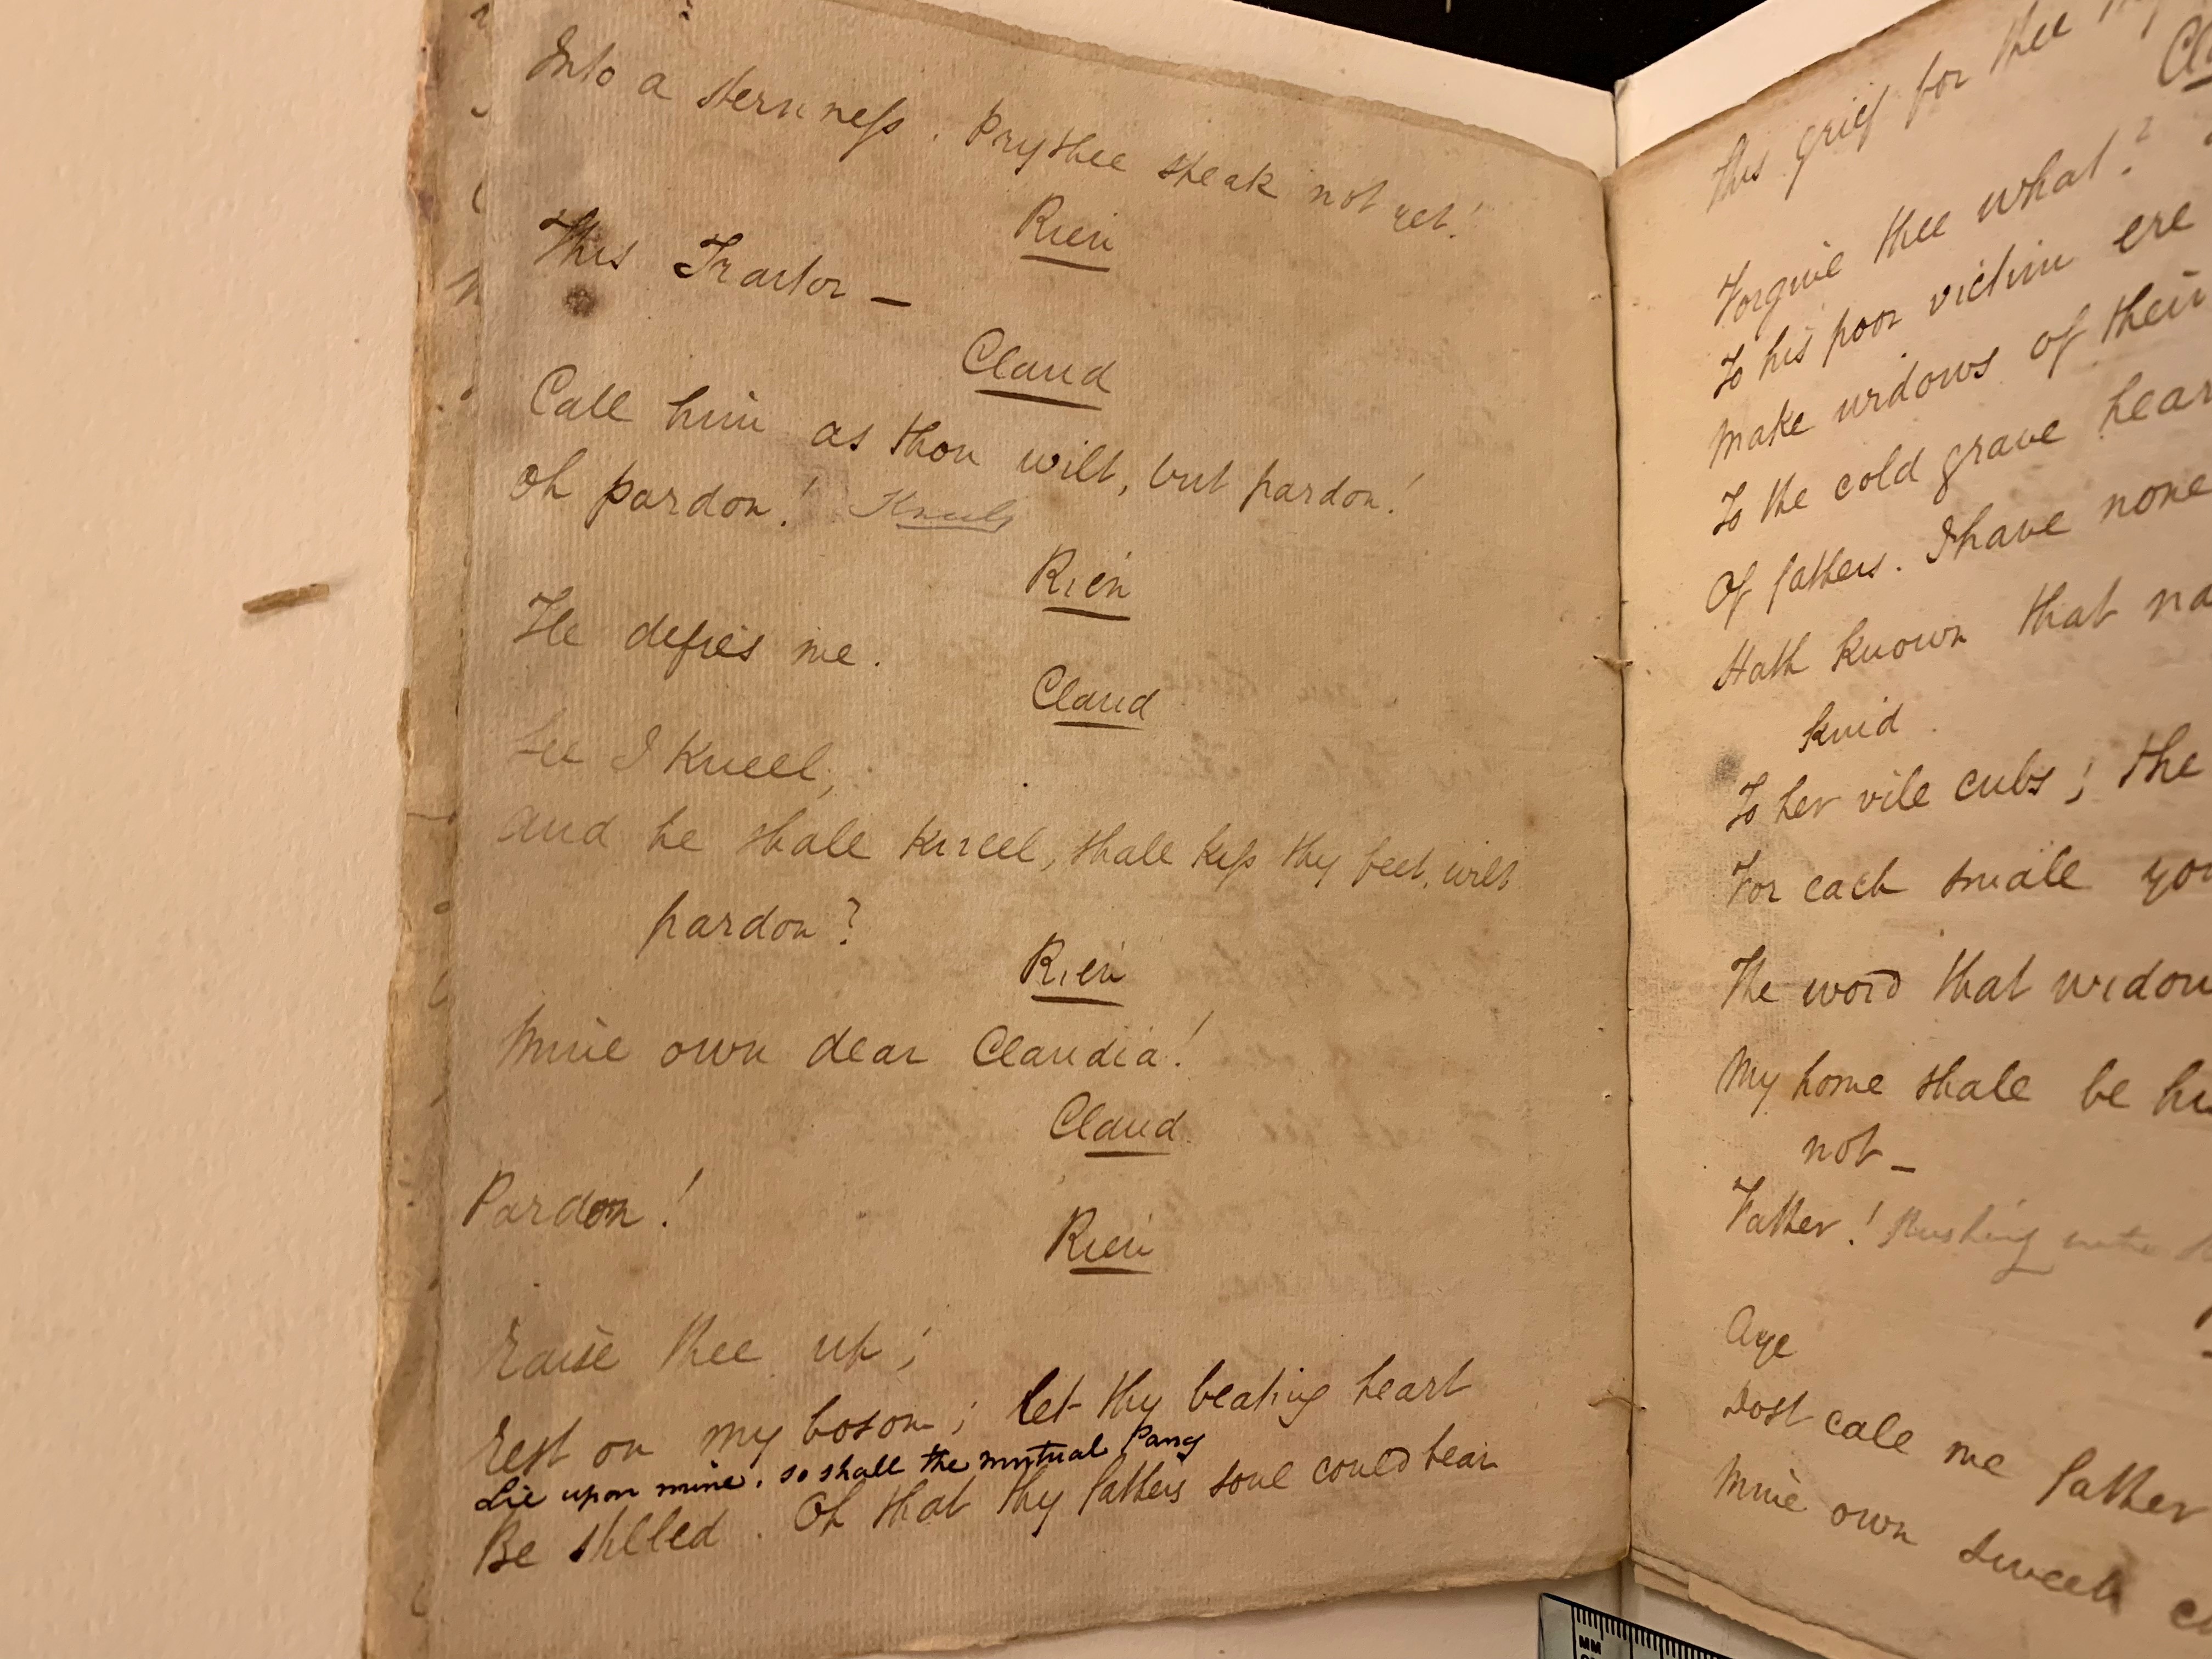 Into a sternness. Prythee speak not yet!
Rien
This Traitor —
Claud
Call him as thou wilt, but pardon!
Oh pardon! Kneels
Rien
He defies me.
Claud
See I kneel,
And he shall kneel, shall kiss thy feet, wilt
pardon?
Rien
Mine own dear Claudia!
Claud
Pardon!
Rien
Raise thee up;
Rest on my bosom; let thy beating heart
Lie upon mine. so shall the mutual Pang
Be stilled. Oh that thy fathers soul could bear
this grief for thee
Forgive thee what?
To his poor victim ere
Make widows of their
To the cold grave hear
Of fathers. I have none
Hath known that na
kind.
To her vile cubs; the
For each smale you
The word that widow
My home shall be hu
not —
Father! Rushing into
Aye
Dost call me father
Mine own sweet c
MM